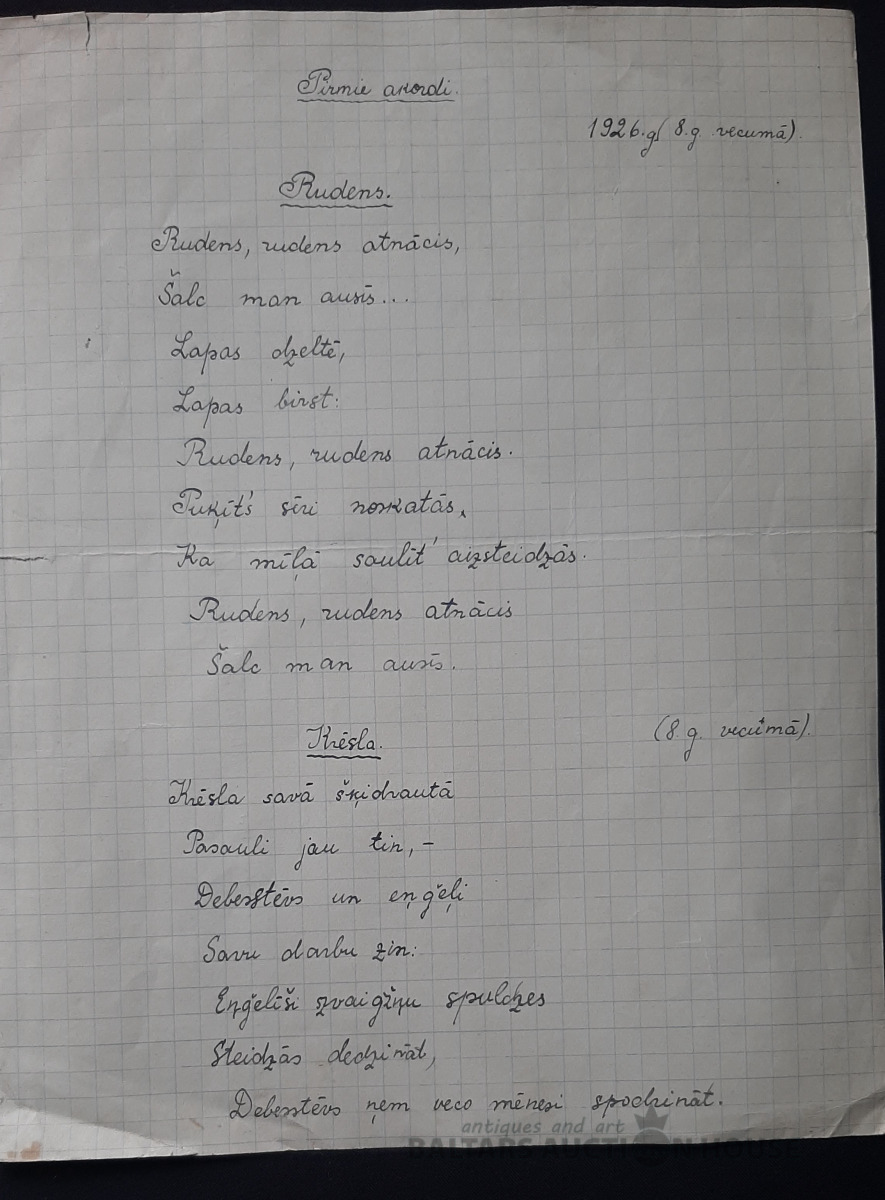 Pirmie akordi.
1926.g. (8.g. vecumā).
Rudens.
Rudens, rudens atnācis,
Šalc man ausīs...
Lapas dzeltē,
Lapas birst:
Rudens, rudens atnācis.
Puķīt's sēri noskatās,
Ka mīļā saulīt' aizsteidzās.
Rudens, rudens atnācis
Šalc man ausīs.
Krēsla.
(8.g. vecumā).
Krēsla savā šķidrautā
Pasauli jau tin, –
Debesstēvs un eņģeļi
Savu darbu zin:
Eņģelīši zvaigžņu spuldzes
Steidzās dedzināt,
Debesstēvs ņem veco mēnesi spodrināt.
antiques and art
BALTARS AUCTION HOUSE